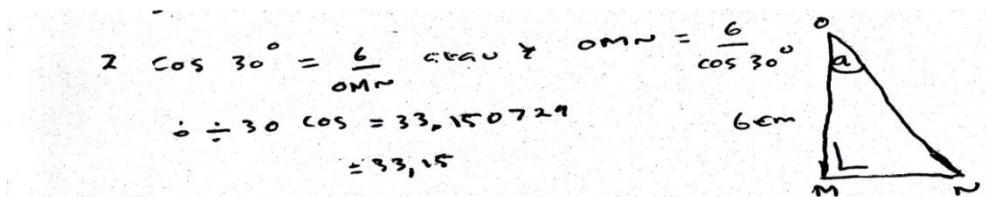 2 cos 30° = 6/OMN atau OMN = 6/cos 30°
6 ÷ 30 cos = 33,150729
= 33,15
O
a
6 cm
M N